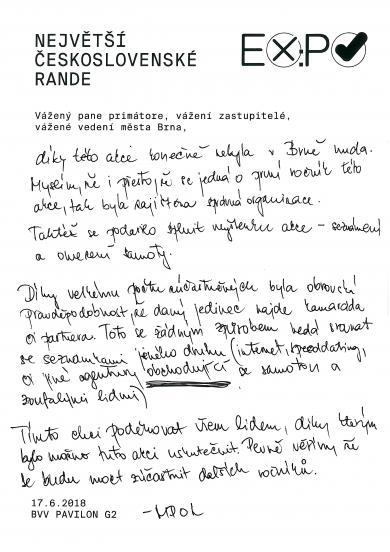 NEJVĚTŠÍ
ČESKOSLOVENSKÉ
RANDE
EX:PO
Vážený pane primátore, vážení zastupitelé,
vážené vedení města Brna,
díky této akci konečně nebyla v Brně nuda.
Myslím, že i přesto, že se jedná o první ročník této
akce, tak byla zajištěna správná organizace.
Taktéž se podařilo splnit myšlenku akce – seznámení
a omezení samoty.
Díky velkému počtu zúčastněných byla obrovská
pravděpodobnost, že daný jedinec najde kamaráda
či partnera. Toto se žádným způsobem nedá srovnat
se seznamkami jiného druhu (internet, speeddating,
či jiné agentury obchodující se samotou a
zoufalými lidmi)
Tímto chci poděkovat všem lidem, díky kterým
bylo možno tuto akci uskutečnit. Pevně věříme, že
se budu moct zúčastnit dalších ročníků.
17.6.2018
BVV PAVILON G2